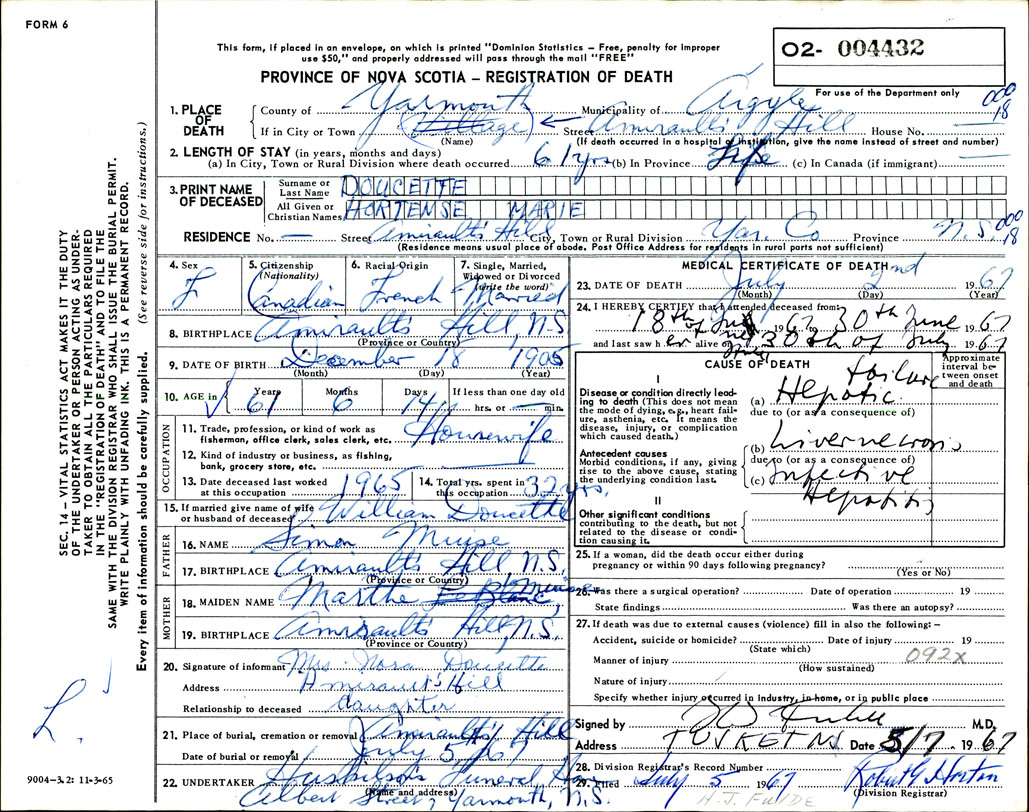 FORM 6
This form, if placed in an envelope, on which is printed "Dominion Statistics – Free, penalty for improper
use $50," and properly addressed will pass through the mail "FREE"
02- 004432
For use of the Department only
PROVINCE OF NOVA SCOTIA – REGISTRATION OF DEATH
000
18
1. PLACE OF DEATH
County of Yarmouth Municipality of Argyle
If in City or Town (Village) Street Amirault's Hill House No. —
(Name) (If death occurred in a hospital or institution, give the name instead of street and number)
2. LENGTH OF STAY (in years, months and days)
(a) In City, Town or Rural Division where death occurred 61 yrs (b) In Province Life (c) In Canada (if immigrant) —
3. PRINT NAME OF DECEASED
Surname or Last Name DOUCETTE
All Given or Christian Names HORTENSE MARIE
RESIDENCE No. — Street Amirault's Hill City, Town or Rural Division Yar. Co Province N.S. 000 18
(Residence means usual place of abode. Post Office Address for residents in rural parts not sufficient)
4. Sex F
5. Citizenship (Nationality) Canadian
6. Racial Origin French
7. Single, Married, Widowed or Divorced (write the word) Married
8. BIRTHPLACE Amirault's Hill, N.S.
(Province or Country)
9. DATE OF BIRTH December 18 1905
(Month) (Day) (Year)
10. AGE in Years 61 Months 6 Days 14 If less than one day old
hrs. or — min.
OCCUPATION
11. Trade, profession, or kind of work as fisherman, office clerk, sales clerk, etc. Housewife
12. Kind of industry or business, as fishing, bank, grocery store, etc. —
13. Date deceased last worked at this occupation 1965
14. Total yrs. spent in this occupation 32 yrs.
15. If married give name of wife or husband of deceased William Doucette
FATHER
16. NAME Simon Muise
17. BIRTHPLACE Amirault's Hill N.S.
(Province or Country)
MOTHER
18. MAIDEN NAME Marthe LeBlanc Muise
19. BIRTHPLACE Amirault's Hill, N.S.
(Province or Country)
20. Signature of informant Mrs. Nora Doucette
Address Amirault's Hill
Relationship to deceased daughter
21. Place of burial, cremation or removal Amirault's Hill
Date of burial or removal July 5, 67
22. UNDERTAKER Funeral
(Name and address)
Albert Street, Yarmouth, N.S.
MEDICAL CERTIFICATE OF DEATH
23. DATE OF DEATH July 2nd 1967
(Month) (Day) (Year)
24. I HEREBY CERTIFY that I attended deceased from:
18th of 1967 30th June 1967
and last saw her alive on 30th of July 1967
CAUSE OF DEATH
Approximate interval between onset and death
I
Disease or condition directly leading to death (This does not mean the mode of dying, e.g., heart failure, asthenia, etc. It means the disease, injury, or complication which caused death.)
(a) Hepatic failure
due to (or as a consequence of)
Antecedent causes
Morbid conditions, if any, giving rise to the above cause, stating the underlying condition last.
(b) Liver necrosis
due to (or as a consequence of)
(c) Infective Hepatitis
II
Other significant conditions contributing to the death, but not related to the disease or condition causing it.
25. If a woman, did the death occur either during pregnancy or within 90 days following pregnancy?
(Yes or No)
26. Was there a surgical operation? Date of operation 19
State findings Was there an autopsy?
27. If death was due to external causes (violence) fill in also the following: –
Accident, suicide or homicide? Date of injury 19
(State which)
092X
Manner of injury
(How sustained)
Nature of injury
Specify whether injury occurred in Industry, in home, or in public place
Signed by M.D.
Address TUSKET NS Date 5/7 1967
28. Division Registrar's Record Number
29. Filed July 5 1967 Robert G. Horton
(Division Registrar)
SEC. 14 – VITAL STATISTICS ACT MAKES IT THE DUTY
OF THE UNDERTAKER OR PERSON ACTING AS UNDER-
TAKER TO OBTAIN ALL THE PARTICULARS REQUIRED
IN THE "REGISTRATION OF DEATH" AND TO FILE THE
SAME WITH THE DIVISION REGISTRAR WHO SHALL ISSUE THE BURIAL PERMIT.
WRITE PLAINLY WITH UNFADING INK. THIS IS A PERMANENT RECORD.
Every item of information should be carefully supplied. (See reverse side for instructions.)
L.
9004-3.2: 11-3-65